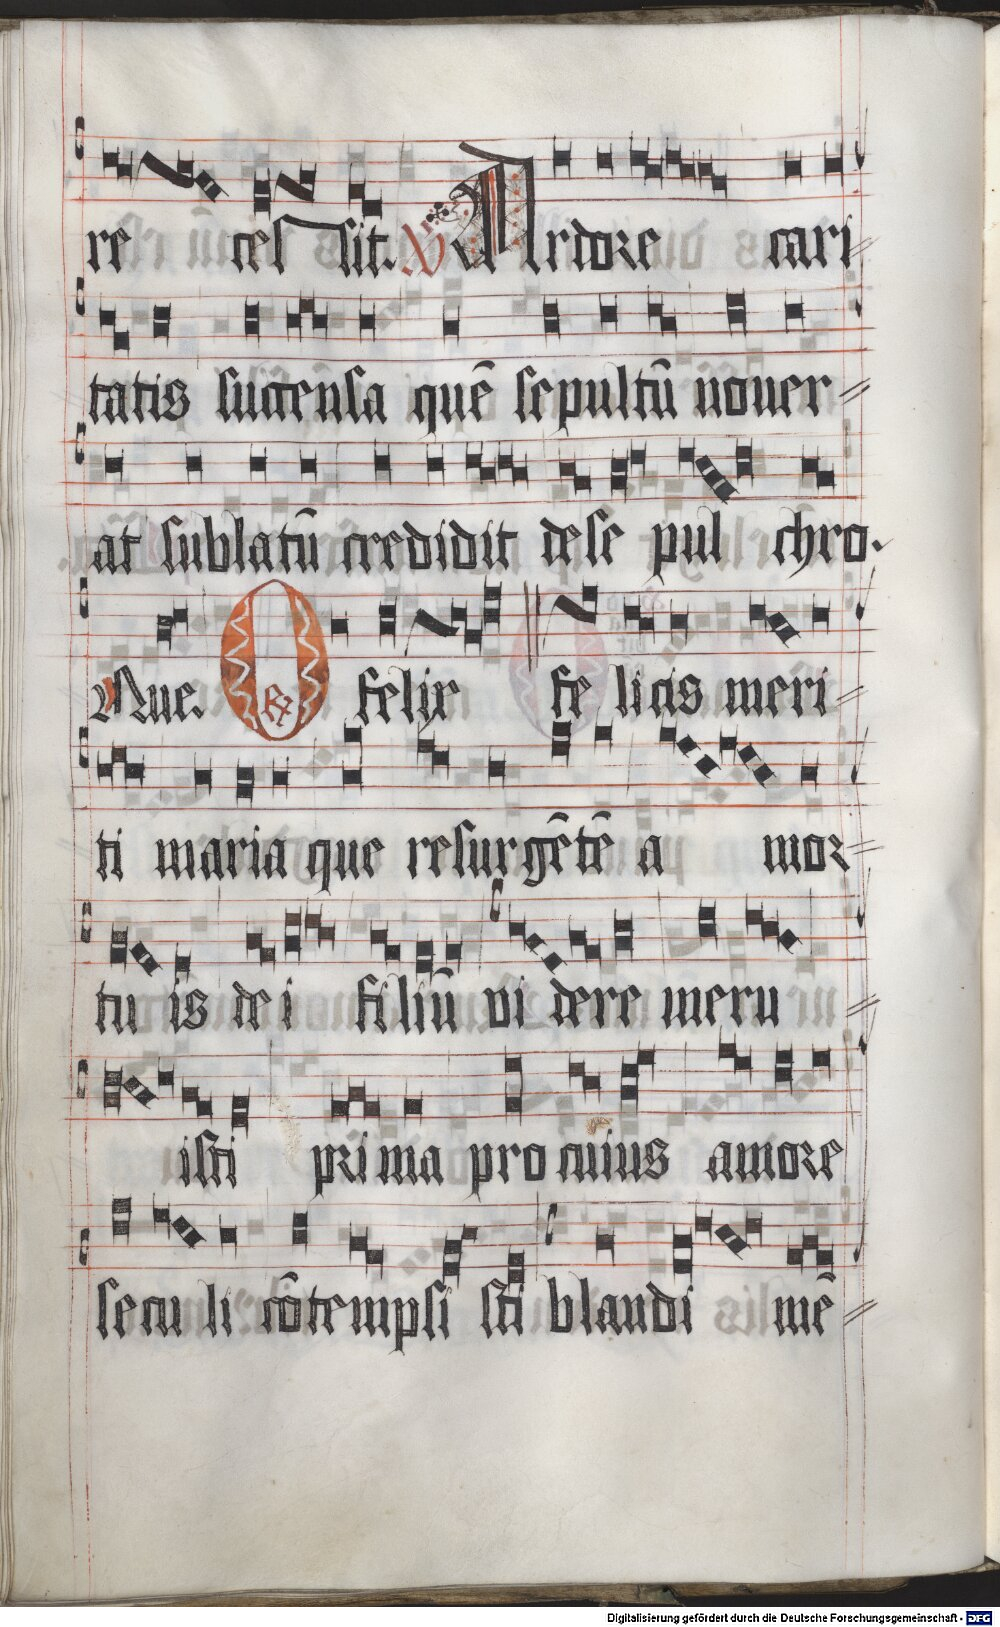 re cessit. V Ardore cari
tatis succensa quē sepultū nouer
at sublatū credidit de se pulchro.
Que. O R felix felicis meri
ti maria que resurgētē a mor
tuis dei filiū videre meru
isti prima pro cuius amore
seculi cōtempsisti blandimē
Digitalisierung gefördert durch die Deutsche Forschungsgemeinschaft - DFG